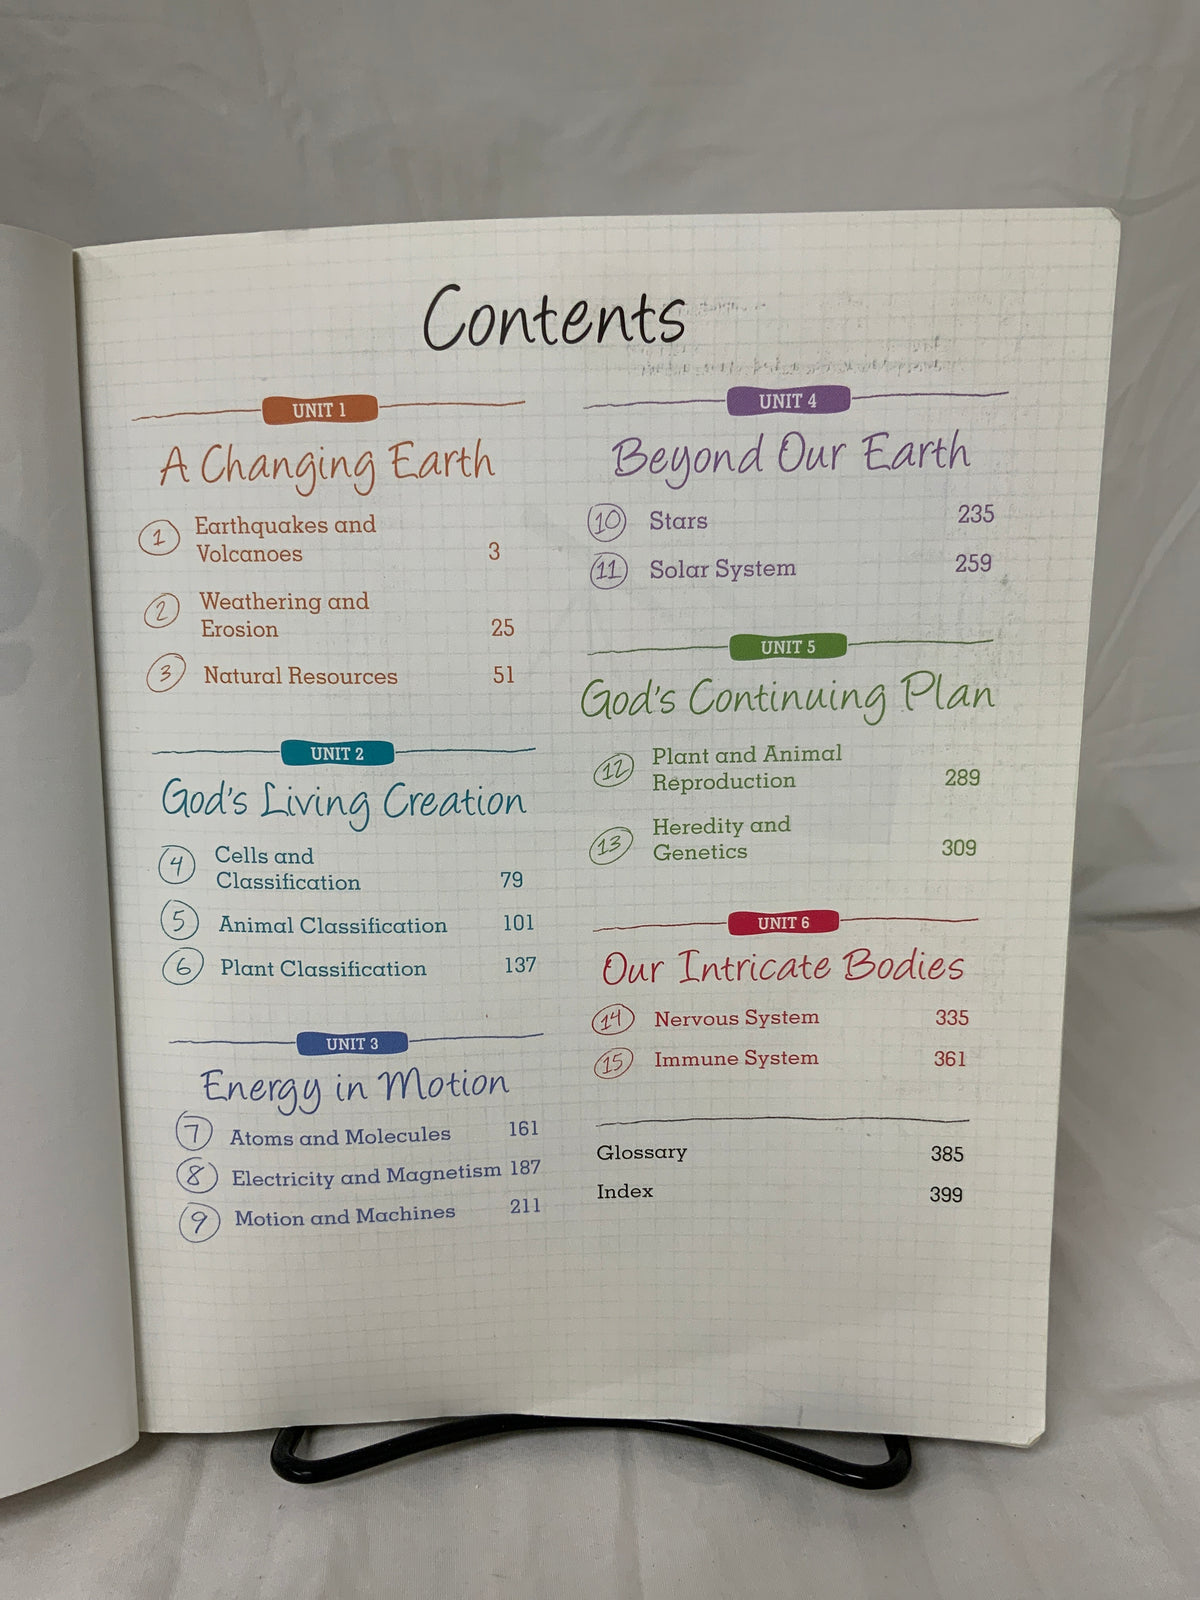 Contents
UNIT 1
A Changing Earth
1 Earthquakes and
Volcanoes 3
2 Weathering and
Erosion 25
3 Natural Resources 51
UNIT 2
God's Living Creation
4 Cells and
Classification 79
5 Animal Classification 101
6 Plant Classification 137
UNIT 3
Energy in Motion
7 Atoms and Molecules 161
8 Electricity and Magnetism 187
9 Motion and Machines 211
UNIT 4
Beyond Our Earth
10 Stars 235
11 Solar System 259
UNIT 5
God's Continuing Plan
12 Plant and Animal
Reproduction 289
13 Heredity and
Genetics 309
UNIT 6
Our Intricate Bodies
14 Nervous System 335
15 Immune System 361
Glossary 385
Index 399